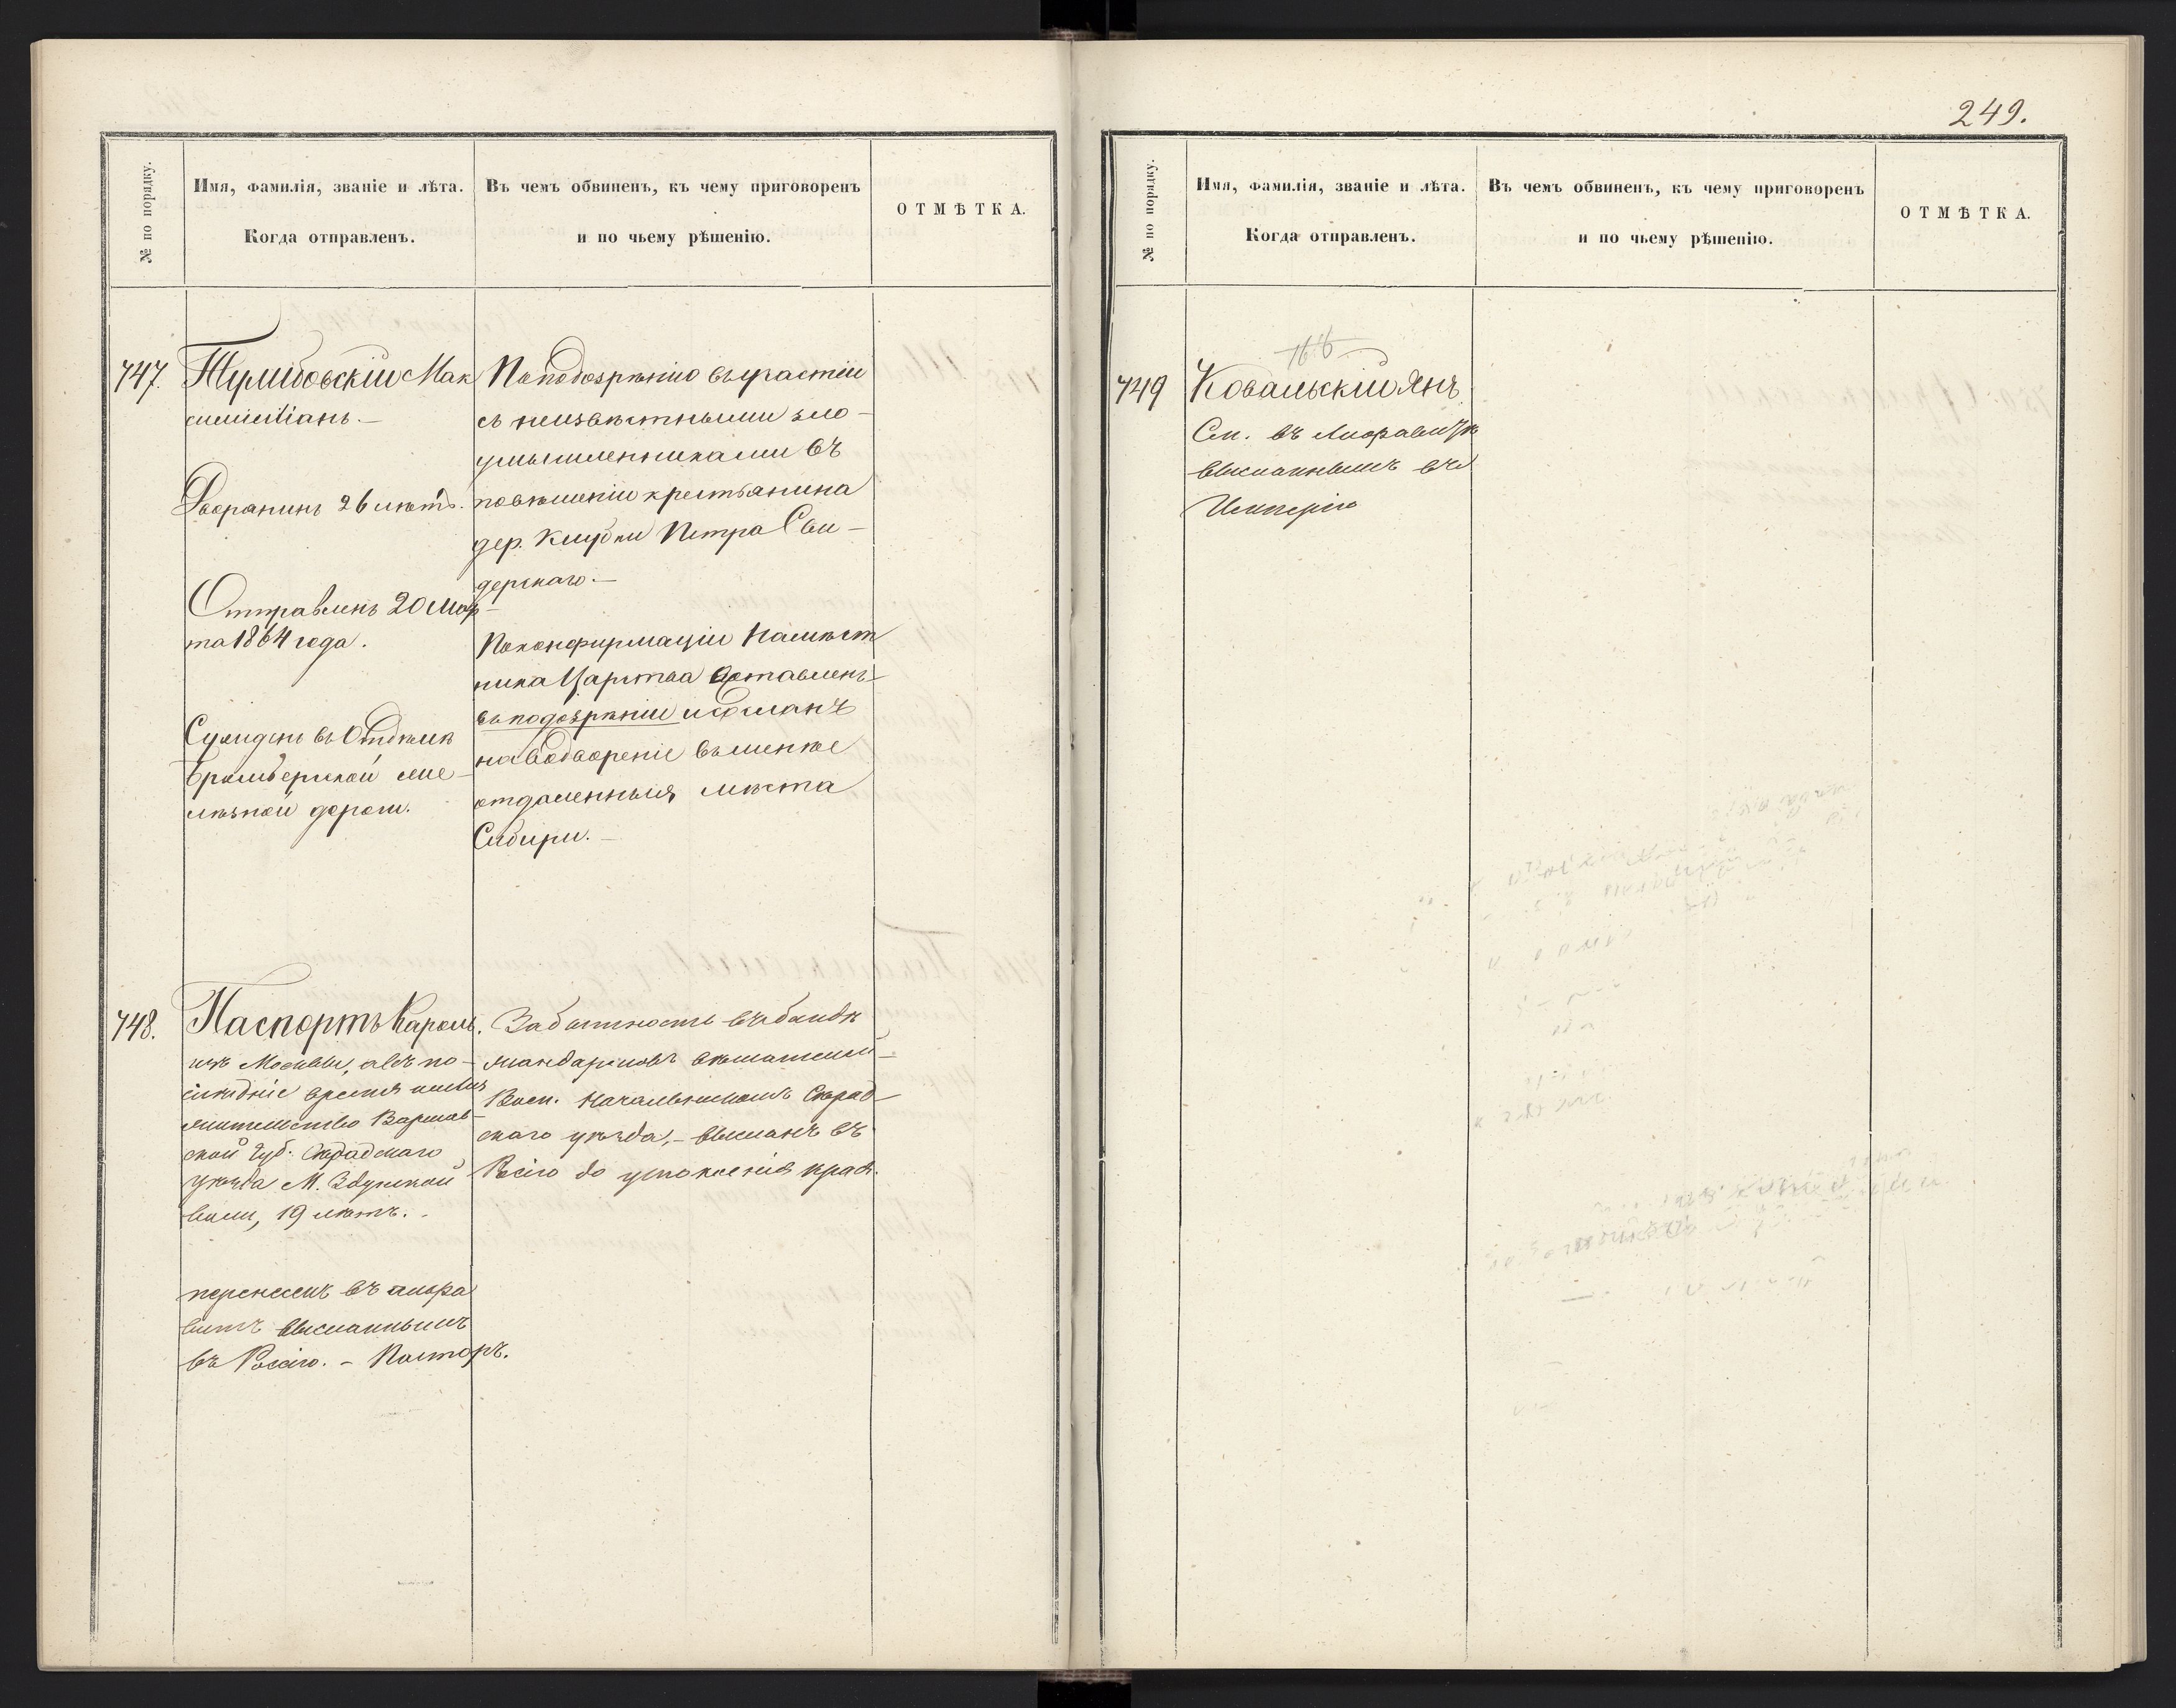 № по порядку.
Имя, фамилія, званіе и лѣта.
Когда отправленъ.
Въ чемъ обвиненъ, къ чему приговоренъ
и по чьему рѣшенію.
ОТМѢТКА.
747.
Мак
симиліанъ.—
Дворянинъ 26 лѣтъ.
Отправленъ 20 Мар-
та 1864 года.
Сужденъ въ Отдѣлѣ
Бромбергской же-
лѣзной дороги.
По подозрѣнію въ участіи
съ неизвѣстными зло-
умышленниками въ
повѣшеніи крестьянина
дер. Петра Сви-
дерскаго.—
По конфирмаціи Намѣст
ника Царства Оставленъ
въ подозрѣніи и сосланъ
на водвореніе въ менѣе
отдаленныя мѣста
Сибири.—
748.
Паспортъ Кароль.
изъ Москвы, а въ по-
слѣдніе время имѣлъ
жительство Варшав-
ской Губ. Сѣрадскаго
уѣзда М. Здунской
Воли, 19 лѣтъ.
перенесенъ въ алфа
витъ высланнымъ
въ Россію. — Пасторъ.
За бытность въ бандѣ
жандармовъ вѣшателей
Воен. Начальникомъ Сѣрад-
скаго уѣзда, — высланъ въ
Россію до успокоенія края.
249.
№ по порядку.
Имя, фамилія, званіе и лѣта.
Когда отправленъ.
Въ чемъ обвиненъ, къ чему приговоренъ
и по чьему рѣшенію.
ОТМѢТКА.
749
Ковальскій Янъ.
См. въ
высланнымъ въ
Имперію